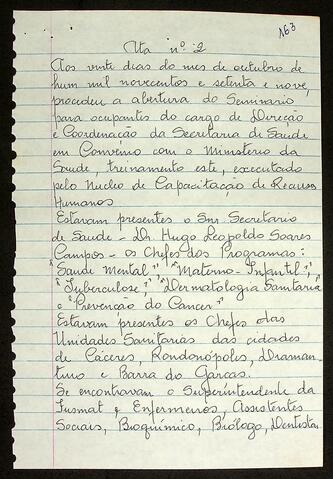 163
Ata nº 2
Aos vinte dias do mes de outubro de
hum mil novecentos e setenta e nove,
procedeu a abertura do Seminario
para ocupantes do cargo de Direção
e Coordenação da Secretaria de Saude
em Convênio com o Ministério da
Saude, treinamento este, executado
pelo Nucleo de Capacitação de Recursos
Humanos
Estavam presentes o Snr Secretario
de Saude - Dr Hugo Leopoldo Soares
Campos - os Chefes dos Programas:
"Saude Mental", "Materno-Infantil",
"Tuberculose", "Dermatologia Sanitaria"
e "Prevenção do Cancer"
Estavam presentes os Chefes das
Unidades Sanitárias das cidades
de Cáceres, Rondonópoles, Diaman-
tino e Barra do Garças.
Se encontravam o Superintendente da
Fusmat e Enfermeiros, Assistentes
Sociais, Bioquímico, Biólogo, Dentistas